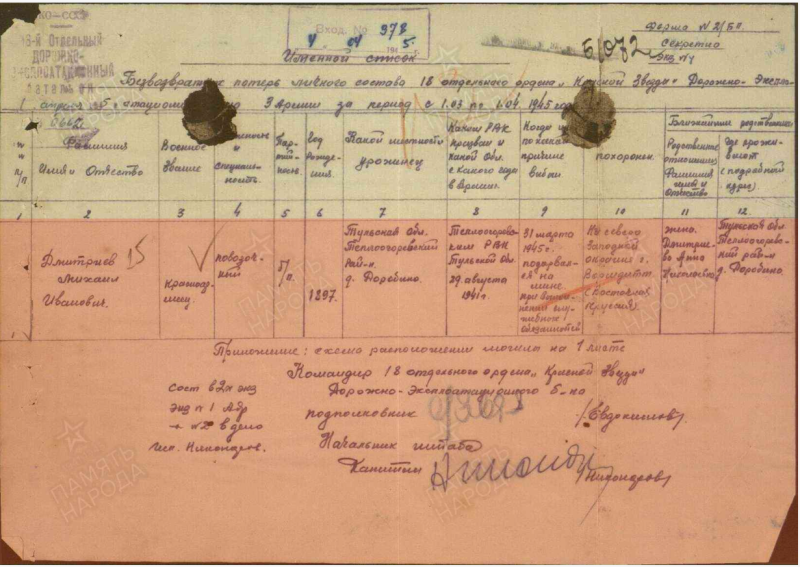 НКО-СССР
18-й Отдельный
ДОРОЖНО-
ЭКСПЛОАТАЦИОННЫЙ
Вход. № 978
Форма № 2/БП
Секретно
Экз №1
Б/072
Именной список
Безвозвратных потерь личного состава 18 отдельного ордена „Красной Звезды" Дорожно-Эксплоатационного
3 армии за период с 1.03 по 1.04 1945 года
Фамилия
Имя и Отчество
Военное
Звание
Специаль-
ность.
Пар-
тий-
ность.
Год
Рожде-
ния.
Какой местности
уроженец
Каким РВК
призван и
какой Обл.
С какого года
в Армии.
похоронен.
Ближайшие родственники
Родственное
отношение
Фамилия
имя и
отчество
Где прожи-
вают
(подробный
адрес).
1 2 3 4 5 6 7 8 9 10 11 12
Дмитриев
Михаил
Иванович.
15
Красноар-
меец.
повозоч-
ный
б/п.
1897.
Тульская обл.
Теплоогаревский
Рай-н.
д. Доробино.
Теплоогарев-
ским РВК
Тульской Обл
29 августа
1941г.
31 марта
1945г.
подорвал-
ся на
мине
при выпол-
нении слу-
жебных
обязанностей
На северо
Западной
окраине г.
(Восточная
Пруссия).
жена.
Дмитрие-
ва Анна
Николаевна
Тульская обл
Теплоогарев-
ский рай-н
д. Доробино.
Приложение: схема расположения могилы на 1 листе
Командир 18 отдельного ордена „Красной Звезды"
Дорожно-Эксплоатационного Б-на
подполковник /Евдокимов/
Начальник штаба
Капитан /Никоноров/
Сост в 2х экз
экз №1 Адр
№2 в дело
исп. Никоноров.
ПАМЯТЬ
НАРОДА